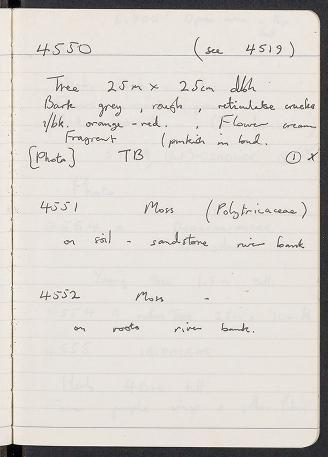 4550 (see 4519)
Tree 25m x 25cm dbh.
Bark grey, rough, reticulate cracks
i/bk. orange-red. , Flower cream
Fragrant (pinkish in bud.
[Photo] TB ① x
4551 Moss (Polytricaceae)
on soil - sandstone river bank
4552 Moss -
on roots river bank.